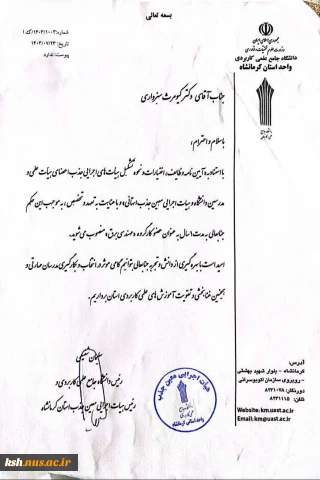 بسمه تعالی
شماره: ۱۴۰۲/۱۰۰۳/ک
تاریخ: ۱۴۰۳/۰۷/۲۳
پیوست: ندارد
جمهوری اسلامی ایران
وزارت علوم، تحقیقات و فناوری
دانشگاه جامع علمی کاربردی
واحد استان کرمانشاه
جناب آقای دکتر کیومرث سبزواری
با سلام و احترام؛
با استناد به آیین نامه وظایف، اختیارات و نحوه تشکیل هیات های اجرایی جذب اعضای هیات علمی و
مدرسین دانشگاه و هیات اجرایی معین جذب استانی و با عنایت به تعهد و تخصص، به موجب این حکم
جنابعالی به مدت ۱ سال به عنوان عضو کارگروه «مهندسی برق» منصوب می شوید.
امید است با بهره گیری از دانش و تجربه جنابعالی بتوانیم گامی موثر در انتخاب و بکارگیری مدرسان مهارتی و
همچنین غنا بخشی و تقویت آموزش های علمی کاربردی استان برداریم.
رئیس دانشگاه جامع علمی کاربردی و
رئیس هیات اجرایی معین جذب استان کرمانشاه
هیات اجرایی معین جذب
واحد استان کرمانشاه
آدرس:
کرمانشاه - بلوار شهید بهشتی
- روبروی سازمان اتوبوسرانی
دورنگار: ۸۲۳۱۰۷۸
تلفن: ۸۲۳۱۱۱۵
Website:km.uast.ac.ir
Email:km@uast.ac.ir
ksh.nus.ac.ir